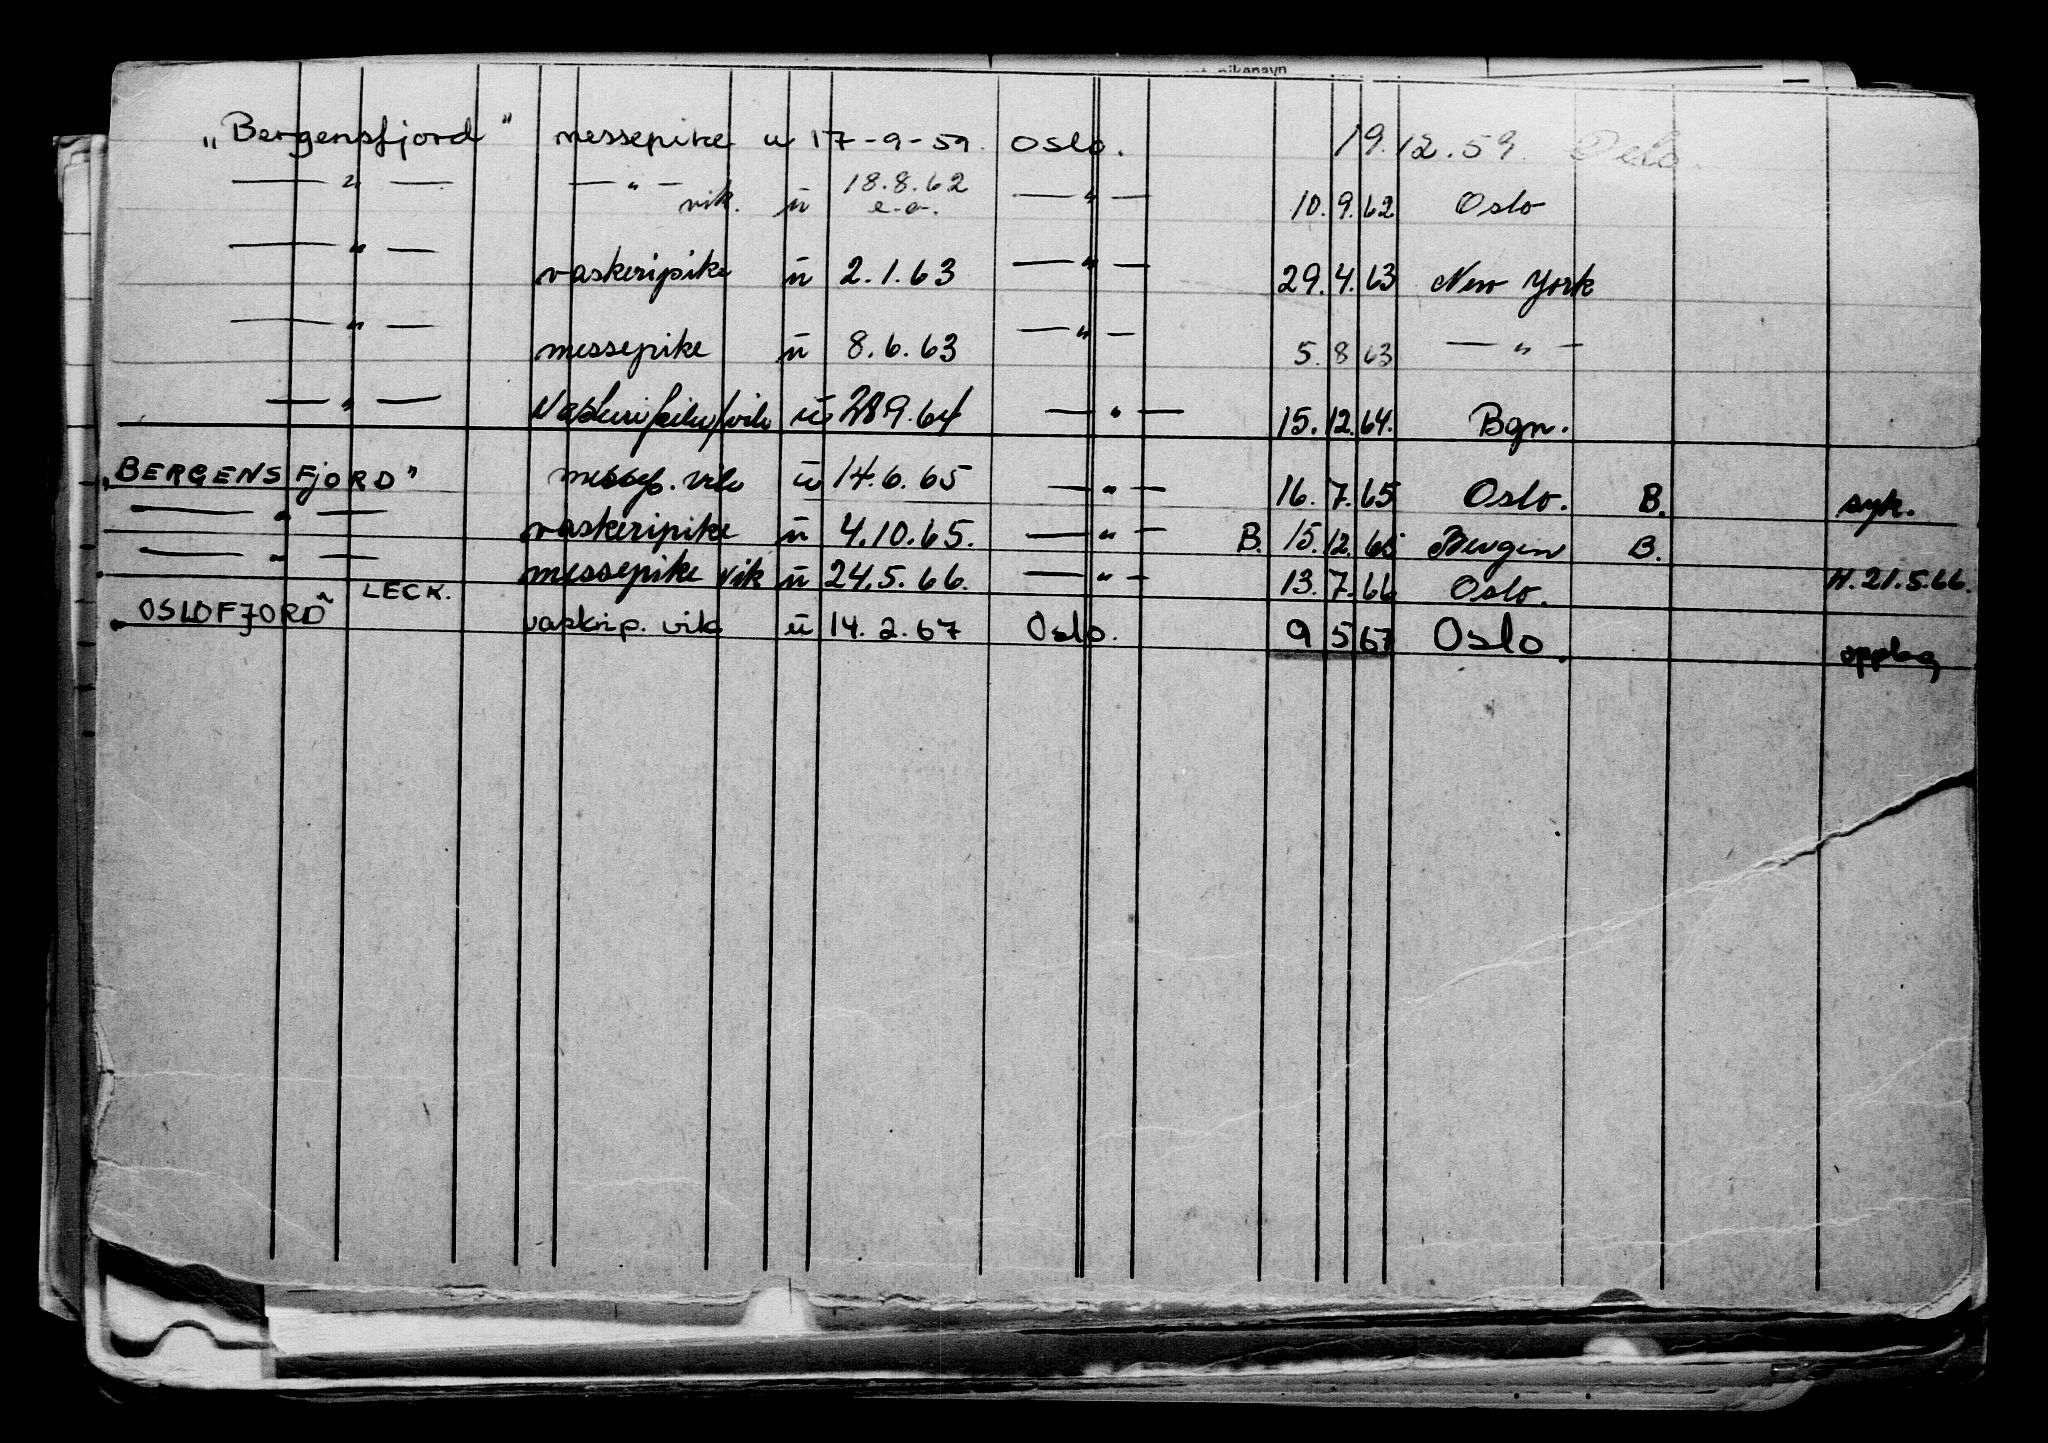 pikenavn
„Bergensfjord" messepike u 17-9-59. Oslo. 19.12.59. Oslo.
— " — — " — vik. ü 18.8.62 e.o. — " — 10.9.62 Oslo
— " — vaskeripike ü 2.1.63 — " — 29.4.63 New York
— " — messepike ü 8.6.63 — " — 5.8.63 — " —
— " — ü 28.9.64 — " — 15.12.64. Bgn.
„BERGENSFjORD" messep. vik ü 14.6.65 — " — 16.7.65 Oslo. B. syk.
— " — vaskeripike ü 4.10.65. — " — B. 15.12.65 Bergen B.
— " — messepike vik ü 24.5.66. — " — 13.7.66 Oslo. H. 21.5.66.
OSLOFJORD" LECK. vaskrip. vik ü 14.2.67 Oslo. 9 5 67 Oslo. opplag